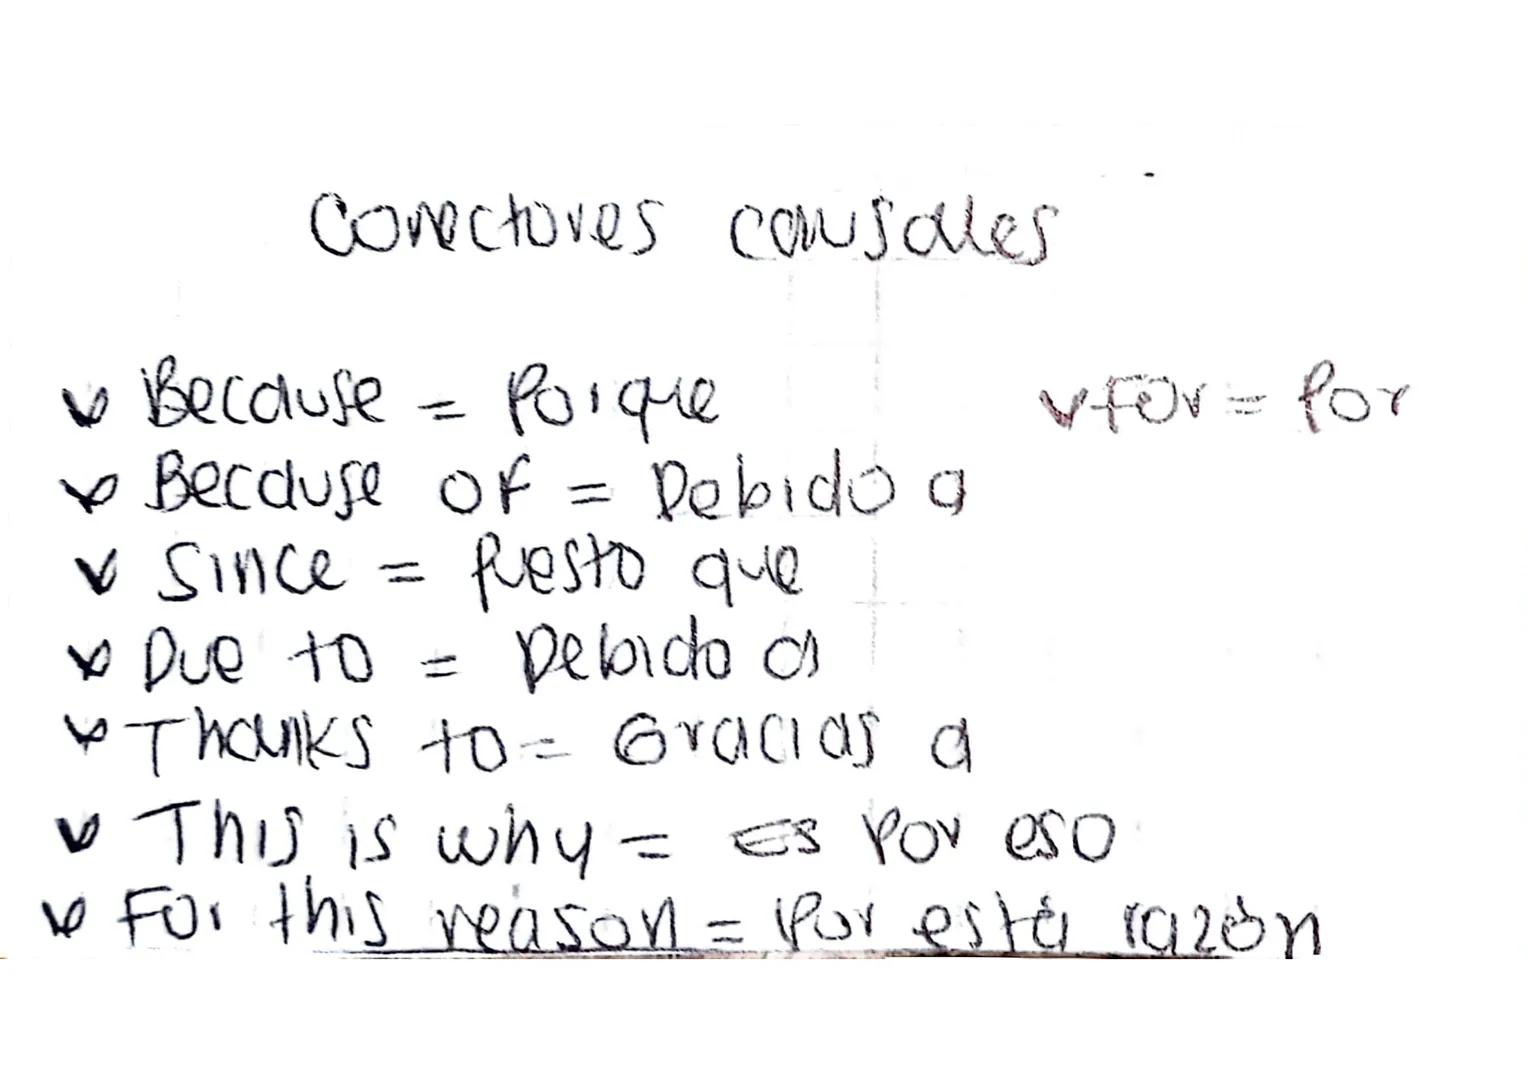 Conectores causales
Because = Porque
for = Por
Because of = Debido a
Since = Puesto que
Due to = Debido a
Thanks to = Gracias a
This is why = Es por eso
For this reason = Por esta razón